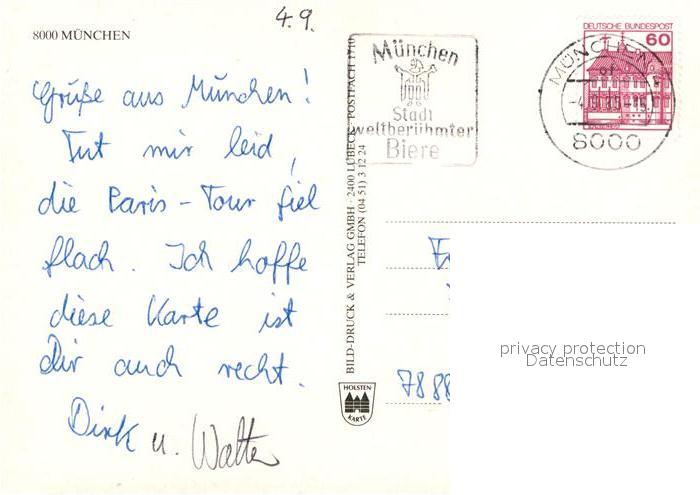 4.9.
8000 MÜNCHEN
Grüße aus München!
Tut mir leid,
die Paris-Tour fiel
flach. Ich hoffe
diese Karte ist
Dir auch recht.
Dirk u. Walter
BILD-DRUCK & VERLAG GMBH · 2400 LÜBECK · POSTFACH 1710
TELEFON (04 51) 3 12 24
HOLSTEN
KARTE
München
Stadt
weltberühmter
Biere
DEUTSCHE BUNDESPOST
60
MÜNCHEN
8000
788
privacy protection
Datenschutz